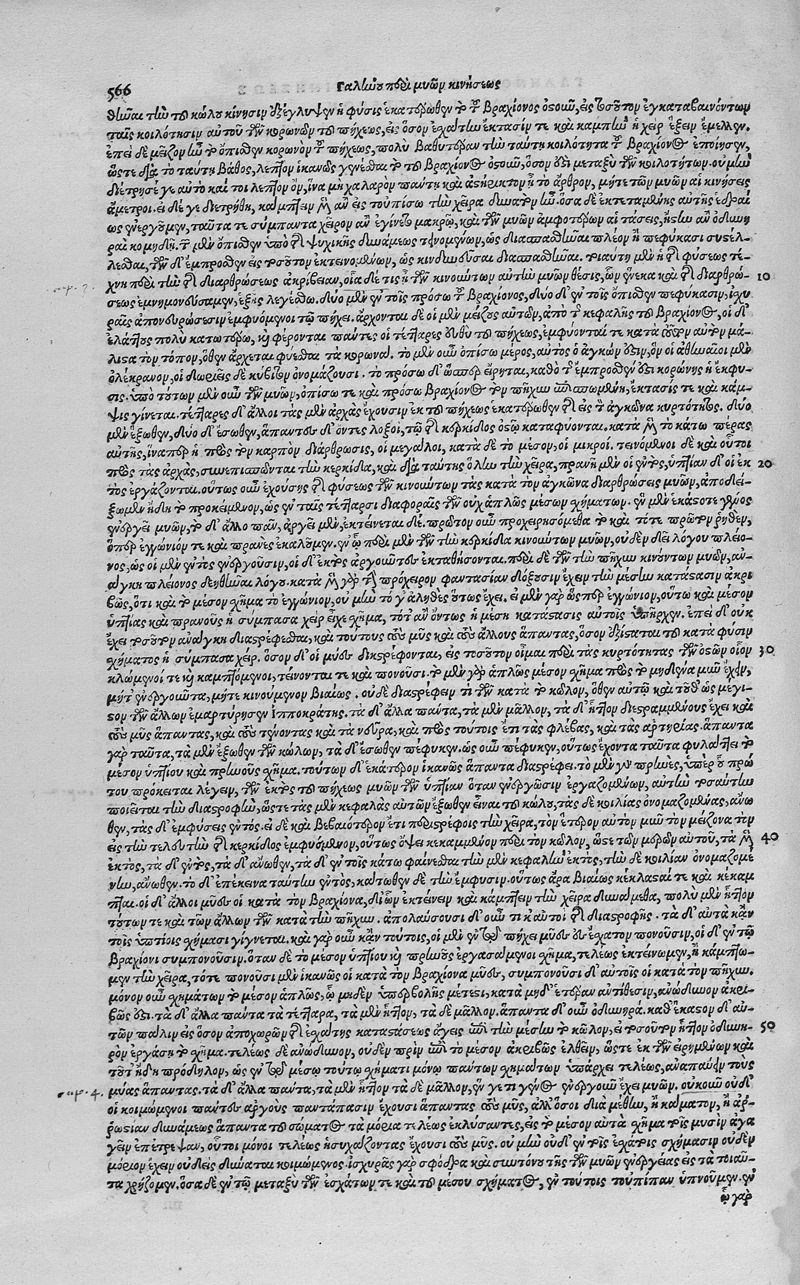 566 Γαληνοῦ περὶ μυῶν κινήσεως
θῆναι τὴν τοῦ κώλου κίνησιν ἐξέγλυψεν ἡ φύσις ἑκατέρωθεν τὸ τοῦ βραχίονος ὀστοῦν, εἰς τοσοῦτον ἐγκαταβαινόντων
ταῖς κοιλότησιν αὐτοῦ τῶν κορωνῶν τοῦ πήχεως, εἰς ὅσον ἐσχάτην ἔκτασίν τε καὶ καμπὴν ἡ χεὶρ ἕξειν ἔμελλεν.
ἐπεὶ δὲ μείζων ἦν τὸ ὄπισθεν κορωνὸν τοῦ πήχεως, πολὺ βαθυτέραν τὴν ταύτῃ κοιλότητα τοῦ βραχίονος ἐποίησεν,
ὥστε διὰ τὸ ταύτῃ βάθος, λεπτὸν ἱκανῶς γενέσθαι τὸ τοῦ βραχίονος ὀστοῦν, ὅσον ἐστὶ μεταξὺ τῶν κοιλοτήτων. οὐ μὴν
διέτρησέ γε αὐτὸ καί τοι λεπτὸν ὄν, ἵνα μὴ χαλαρὸν παύτῃ καὶ ἀστήρικτον ᾖ τὸ ἄρθρον, μήτε τῶν μυῶν αἱ κινήσεις
ἄμετροι. εἰ δέ γε διετρήθη, κάμπτειν μὲν ἂν εἰς τοὐπίσω τὴν χεῖρα δυνατὸν ἦν. ὅσα δὲ ἐκτεταμένης αὐτῆς ἑδραίως
ἐνεργοῦμεν, ταῦτά τε σύμπαντα χεῖρον ἂν ἐγίνετο μακρῷ, καὶ τῶν μυῶν ἀμφοτέρων αἱ τάσεις, ἧσαν ἂν ὀδυνηραὶ
κομιδῇ. τῶν μὲν ὄπισθεν ὑπὸ τῆς ψυχικῆς δυνάμεως τεινομένων, ὡς διασπασθῆναι πλέον ἢ πεφύκασι συστέλλεσθαι,
τῶν δ' ἔμπροσθεν εἰς τοσοῦτον ἐκτεινομένων, ὡς κινδυνεῦσαι διασπασθῆναι. τοιαύτη μὲν ἡ τῆς φύσεως τέχνη
περὶ τὴν τῆς διαρθρώσεως ἀκρίβειαν, οἵα δέ τις ἡ τῶν κινούντων αὐτὴν μυῶν θέσις, ὧν ἕνεκα καὶ τῆς διαρθρώ- 10
σεως ἐμνημονεύσαμεν, ἑξῆς λεγέσθω. δύο μὲν ἐν τοῖς πρόσω τοῦ βραχίονος, δύο δ' ἐν τοῖς ὄπισθεν πεφύκασιν, ἰσχυραῖς
ἀπονευρώσεσιν ἐμφυόμενοι τῷ πήχει. ἄρχονται δὲ οἱ μὲν μείζους αὐτῶν, ἀπὸ τῆς κεφαλῆς τοῦ βραχίονος, οἱ δ'
ἐλάττους πολὺ κατωτέρω, καὶ φέρονται πάντες οἱ τέτταρες εὐθὺ τοῦ πήχεως, ἐμφύονταί τε κατὰ τοῦτον αὐτὸν μάλιστα
τὸν τόπον, ὅθεν ἄρχεται φύεσθαι τὰ κορωνά. τὸ μὲν οὖν ὀπίσω μέρος, αὐτὸς ὁ ἀγκών ἐστιν, ὃν οἱ ἀθηναῖοι μὲν
ὀλέκρανον, οἱ δωριεῖς δὲ κύβιτον ὀνομάζουσι. τὸ πρόσω δ' ὥσπερ εἴρηται, καθ' ὃ τὸ ἔμπροσθέν ἐστι κορώνης ἡ ἔκφυσις.
ὑπὸ τούτων μὲν οὖν τῶν μυῶν, ὀπίσω τε καὶ πρόσω βραχίονος τὸν πῆχυν ἐπισπωμένων, ἔκτασίς τε καὶ κάμψις
γίνεται. τέτταρες δ' ἄλλοι τὰς μὲν ἀρχὰς ἔχουσιν ἐκ τοῦ πήχεως ἑκατέρωθεν τῆς εἰς τὸ ἀγκῶνα κυρτότητος. δύο
μὲν ἔξωθεν, δύο δ' ἔσωθεν, ἅπαντες δ' ὄντες λοξοί, τῷ τῆς κερκίδος ὀστῷ καταφύονται. κατὰ μὲν τὸ κάτω πέρας
αὐτῆς, ἵναπερ ἡ πρὸς τὸν καρπὸν διάρθρωσις, οἱ μεγάλοι, κατὰ δὲ τὸ μέσον, οἱ μικροί. τεινόμενοι δὲ καὶ οὗτοι
πρὸς τὰς ἀρχὰς, συνεπισπῶνται τὴν κερκίδα, καὶ διὰ ταύτης ὅλην τὴν χεῖρα, πρανῆ μὲν οἱ ἐντὸς, ὑπτίαν δ' οἱ ἐκ 20
τὸς ἐργάζονται. οὕτως οὖν ἐχούσης τῆς φύσεως τῶν κινούντων τὰς κατὰ τὸν ἀγκῶνα διαρθρώσεις μυῶν, ἀποδείξωμεν
ἤδη τὸ προκείμενον, ὡς ἐν ταῖς τέτταρσι διαφοραῖς τῶν οὐχ ἁπλῶς μέσων σχημάτων. ἓν μὲν ἑκάστοτε γένος
ἐνεργεῖ μυῶν, τὸ δ' ἄλλο πᾶν, ἀργεῖ μὲν, ἐκτείνεται δέ. πρῶτον οὖν προχειρησόμεθα τὸ καὶ τότε πρῶτον ῥηθὲν,
ὅπερ ἐγγώνιόν τε καὶ πρανὲς ἐκαλοῦμεν. ἐν ᾧ περὶ μὲν τῶν τὴν κερκίδα κινούντων μυῶν, οὐδὲν δεῖ λόγου πλείονος,
ὡς οἱ μὲν ἐντὸς ἐνεργοῦσιν, οἱ δ' ἐκτὸς ἀργοῦντες ἐκταθήσονται. περὶ δὲ τῶν τὴν πῆχυν κινούντων μυῶν, ἀνάγκη
πλείονος δεηθῆναι λόγου. κατὰ μὲν γὰρ τὴν πρόχειρον φαντασίαν δόξουσιν ἔχειν τὴν μέσην κατάστασιν ἀκριβῶς,
ὅτι καὶ τὸ μέσον σχῆμα τὸ ἐγγώνιον, οὐ μὴν τό γ' ἀληθὲς οὕτως ἔχει. εἰ μὲν γὰρ ὥσπερ ἐγγώνιον, οὕτω καὶ μέσον
ὑπτίας καὶ πρανοῦς ἡ σύμπασα χεὶρ εἶχε σχῆμα, τότ' ἂν ὄντως ἡ μέση κατάστασις αὐτοῖς ὑπῆρχεν. ἐπεὶ δ' οὐκ
ἔχει τοῦτον ἀνάγκη διαστρέφεσθαι, καὶ τούτους τοὺς μῦς καὶ τοὺς ἄλλους ἅπαντας, ὅσον ἐξίσταται τοῦ κατὰ φύσιν
σχήματος ἡ σύμπασα χείρ. ὅσον δ' οἱ μύες διαστρέφονται, εἰς τοσοῦτον οἶμαι περὶ τὰς κυρτότητας τῶν ὀστῶν οἷον 30
κλώμενοί τε καὶ καμπτόμενοι, τείνονταί τε καὶ πονοῦσι. τὸ μὲν γὰρ ἁπλῶς μέσον σχῆμα πρὸς τὸ μηδένα μῦν ἔχειν,
μήτ' ἐνεργοῦντα, μήτε κινούμενον βιαίως. οὐδὲ διαστρέφειν τι τῶν κατὰ τὸ κῶλον, ὅθεν αὐτῷ καὶ τοῦθ' ὡς μέγιστον
τῶν ἄλλων ἐμαρτύρησεν ἱπποκράτης. τὰ δ' ἄλλα πάντα, τὰ μὲν μᾶλλον, τὰ δ' ἧττον διεστραμμένους ἔχει καὶ
τοὺς μῦς ἅπαντας, καὶ τοὺς τένοντας καὶ τὰ νεῦρα, καὶ πρὸς τούτοις ἔτι τὰς φλέβας, καὶ τὰς ἀρτηρίας. ἅπαντα
γὰρ ταῦτα, τὰ μὲν ἔξωθεν τῶν κώλων, τὰ δ' ἔσωθεν πέφυκεν. ὡς οὖν πέφυκεν, οὕτως ἔχοντα ταῦτα φυλάττει τὸ
μέσον ὑπτίου καὶ πρηνοῦς σχῆμα. τούτων δ' ἑκάτερον ἱκανῶς ἅπαντα διαστρέφει. τὸ μὲν γὲ πρηνὲς, ὑπὲρ οὗ πρώτου
πρόκειται λέγειν, τῶν ἐκτὸς τοῦ πήχεως μυῶν τῶν ὑπτίαν ὅταν ἐνεργῶσιν ἐργαζομένων, αὐτὴν τοσαύτην
ποιεῖται τὴν διαστροφὴν, ὥστε τὰς μὲν κεφαλὰς αὐτῶν ἔξωθεν εἶναι τοῦ κώλου, τὰς δὲ κοιλίας ὀνομαζομένας, ἄνωθεν,
τὰς δ' ἐμφύσεις ἐντός. εἰ δὲ καὶ βεβαιότερον ἔτι περιστρέφοις τὴν χεῖρα, τὸν ἕτερον αὐτὸν μῦν τὸν μείζονα τὸν
εἰς τὴν τελευτὴν τῆς κερκίδος ἐμφυόμενον, οὕτως ὄψει κεκαμμένον περὶ τὸν κῶλον, ὥστε τῶν μορίων αὐτοῦ, τὰ μὲν 40
ἐκτὸς, τὰ δ' ἐντὸς, τὰ δ' ἄνωθεν, τὰ δ' ἐν τοῖς κάτω φαίνεσθαι τὴν μὲν κεφαλὴν ἐκτὸς, τὴν δὲ κοιλίαν ὀνομαζομένην,
ἄνωθεν. τὸ δ' ἐπέκεινα ταύτην ἐντὸς, κάτωθεν δὲ τὴν ἔμφυσιν. οὕτως ἄρα βιαίως κέκλασταί τε καὶ κέκαμπται.
οἱ δ' ἄλλοι μύες οἱ κατὰ τὸν βραχίονα, δι' ὧν ἐκτείνειν καὶ κάμπτειν τὴν χεῖρα δυνάμεθα, πολὺ μὲν ἧττον
τούτων τε καὶ τῶν ἄλλων τῶν κατὰ τὴν πῆχυν. ἀπολαύουσι δ' οὖν τι καὶ αὐτοὶ τῆς διαστροφῆς. τὰ δ' αὐτὰ κἂν
τοῖς ὑπτίοις σχήμασι γίγνεται. καὶ γὰρ οὖν κἀν τούτοις, οἱ μὲν ἐν τῷ πήχει μύες ἐς ἔσχατον πονοῦσιν, οἱ δ' ἐν τῷ
βραχίονι συμπονοῦσιν. ὅταν δὲ τὸ μέσον ὑπτίου καὶ πρηνοῦς ἐργασάμενοι σχῆμα, τελέως ἐκτείνωμεν, ἢ κάμπτωμεν
τὴν χεῖρα, τότε πονοῦσι μὲν ἱκανῶς οἱ κατὰ τὸν βραχίονα μύες, συμπονοῦσι δ' αὐτοῖς οἱ κατὰ τὸν πῆχυν.
μόνον οὖν σχημάτων τὸ μέσον ἁπλῶς, ᾧ μηδὲν ὑπερβολῆς μέτεστι, κατὰ μηδ' ἑτέραν ἀντίθεσιν, ἀνώδυνον ἀκριβῶς
ἐστι. τὰ δ' ἄλλα πάντα τὰ τέτταρα, τὰ μὲν ἧττον, τὰ δὲ μᾶλλον. ἅπαντα δ' οὖν ὀδυνηρά. καθ' ἕκαστον δ' αὐτῶν
πάλιν εἰς ὅσον ἀποχωρῶν τῆς ἐσχάτης καταστάσεως ἄγεις ἐπὶ τὴν μέσην τὸ κῶλον, εἰς τοσοῦτον ἧττον ὀδυνη- 50
ρὸν ἐργάσῃ τὸ σχῆμα. τελέως δὲ ἀνώδυνον, οὐδὲν πρὶν ἐπὶ τὸ μέσον ἀκριβῶς ἐλθεῖν, ὥστε ἐκ τῶν εἰρημένων καὶ
τοῦτ' ἤδη πρόδηλον, ὡς ἐν τῷ μέσῳ τούτῳ σχήματι μόνῳ πάντων σχημάτων ὑπάρχει τελέως, ἀναπαύειν τοὺς
μύας ἅπαντας. τὰ δ' ἄλλα πάντα, τὰ μὲν ἧττον τὰ δὲ μᾶλλον, ἕν γέ τι γένος ἐνεργοῦν ἔχει μυῶν. οὐκοῦν οὐδ'
οἱ κοιμώμενοι πάντες ἀργοὺς παντάπασιν ἔχουσι ἅπαντας τοὺς μῦς, ἀλλ' ὅσοι διὰ μέθην, ἢ κάματον, ἢ ἀρρωστίαν
δυνάμεως ἅπαντα τοῦ σώματος τὰ μόρια τελέως ἐκλύσαντες, εἰς τὸ μέσον αὐτὰ σχῆμα τοῖς μυσὶν ἀγαγεῖν
ἐπέτρεψαν, οὗτοι μόνοι τελέως ἡσυχάζοντας ἔχουσι τοὺς μῦς. οὐ μὴν οὐδ' ἐν τοῖς ἐσχάτοις σχήμασιν οὐδὲν
μόριον ἔχειν οὐδεὶς δύναται κοιμώμενος. ἰσχυρᾶς γὰρ σφόδρα καὶ συντόνου τῆς τῶν μυῶν ἐνεργείας εἰς τὰ τοιαῦτα
χρῄζομεν. ὅσα δὲ ἐν τῷ μεταξὺ τῶν ἐσχάτων τε καὶ τοῦ μέσου σχήματος, ἐν τούτοις τοὐπίπαν ὑπνοῦμεν. ἐν
ᾧ γὰρ